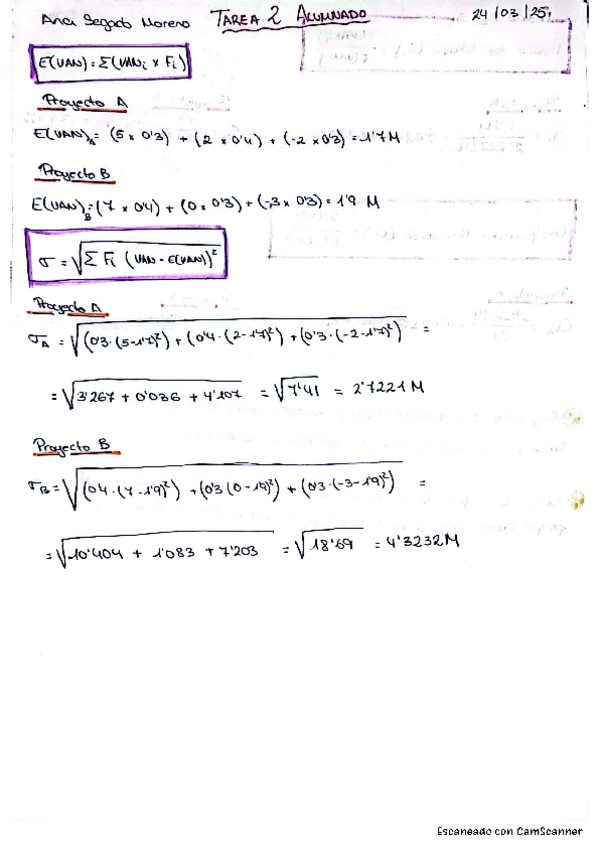 Ana Segado Moreno TAREA 2 ALUMNADO 24/03/25.
E(VAN) = Σ(VANi x Fi)
Proyecto A
E(VAN)A = (5 x 0'3) + (2 x 0'4) + (-2 x 0'3) = 1'7 M
Proyecto B
E(VAN)B = (7 x 0'4) + (0 x 0'3) + (-3 x 0'3) = 1'9 M
σ = √Σ Fi (VAN - E(VAN))²
Proyecto A
σA = √(0'3 · (5-1'7)²) + (0'4 · (2-1'7)²) + (0'3 · (-2-1'7)²) =
= √3'267 + 0'036 + 4'107 = √7'41 = 2'7221 M
Proyecto B
σB = √(0'4 · (7-1'9)²) + (0'3 (0-1'9)²) + (0'3 · (-3-1'9)²) =
= √10'404 + 1'083 + 7'203 = √18'69 = 4'3232 M
Escaneado con CamScanner